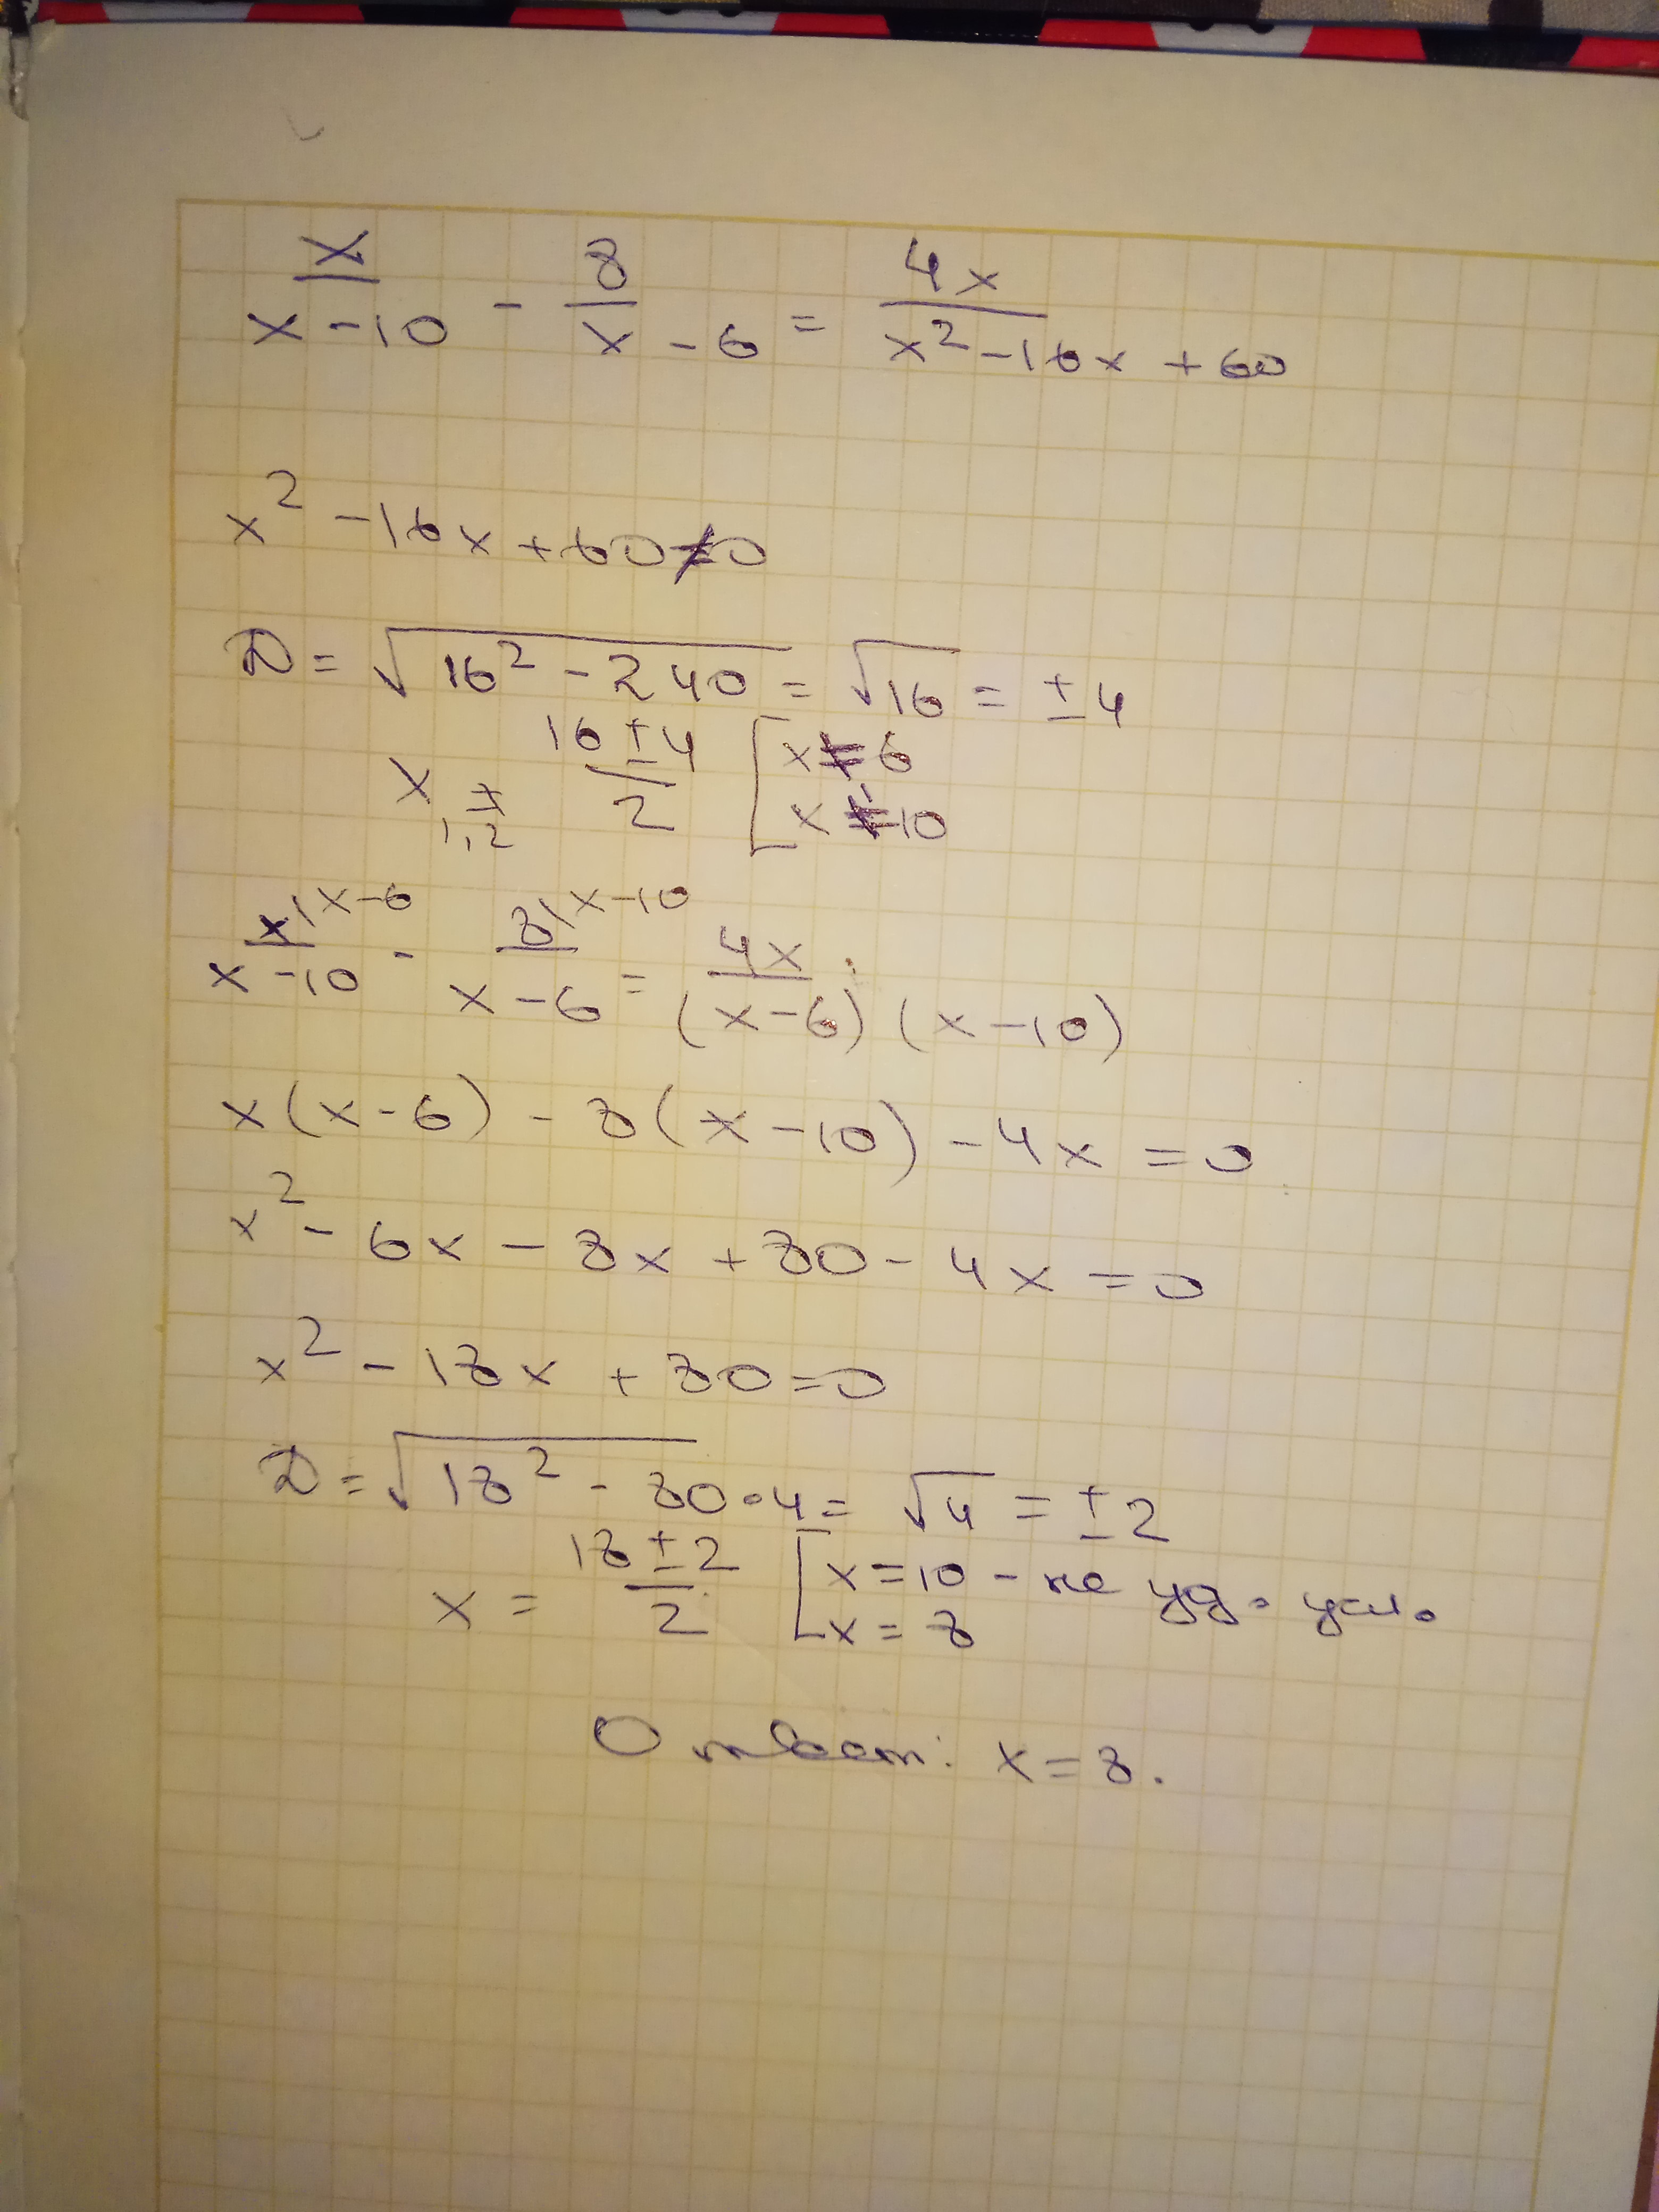 x/(x-10) - 8/(x-6) = 4x/(x²-16x+60)
x²-16x+60≠0
D = √(16²-240) = √16 = ±4
x₁,₂ ≠ (16±4)/2 [x≠6 x≠10
x|x-6/(x-10) - 8|x-10/(x-6) = 4x/((x-6)(x-10))
x(x-6) - 8(x-10) - 4x = 0
x² - 6x - 8x + 80 - 4x = 0
x² - 18x + 80 = 0
D = √(18² - 80·4) = √4 = ±2
x = (18±2)/2 [x=10 - не уд. усл. x=8
Ответ: x=8.